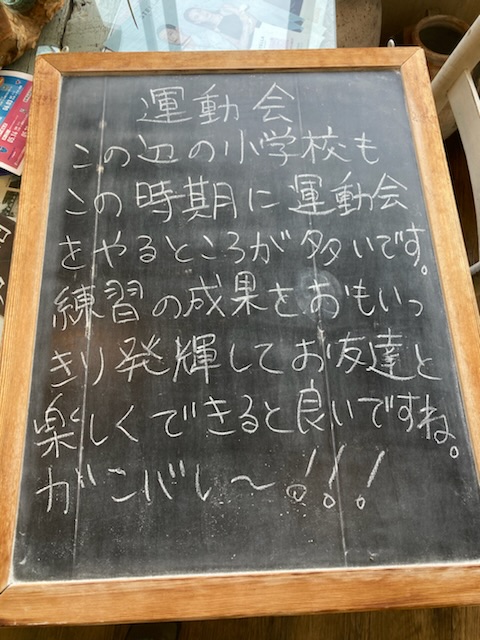 運動会
この辺の小学校も
この時期に運動会
をやるところが多いです。
練習の成果をおもいっ
きり発揮してお友達と
楽しくできると良いですね。
ガンバレ〜!!!